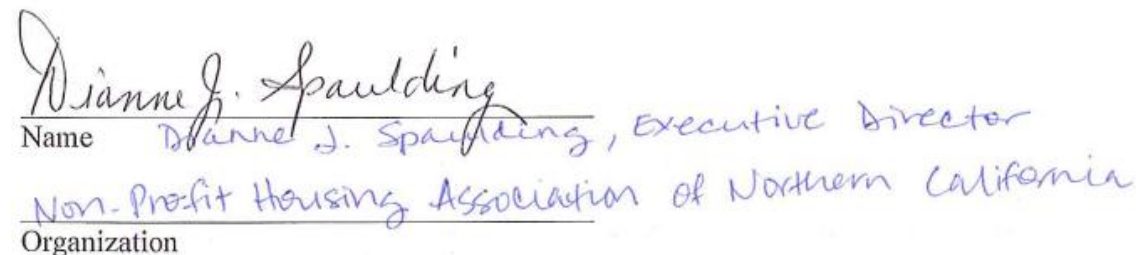 Dianne J. Spaulding
Name Dianne J. Spaulding, Executive Director
Non-Profit Housing Association of Northern California
Organization